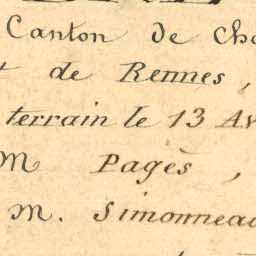 Canton de Cha
t de Rennes,
terrain le 13 Av
M Pagès,
M. Simonneau